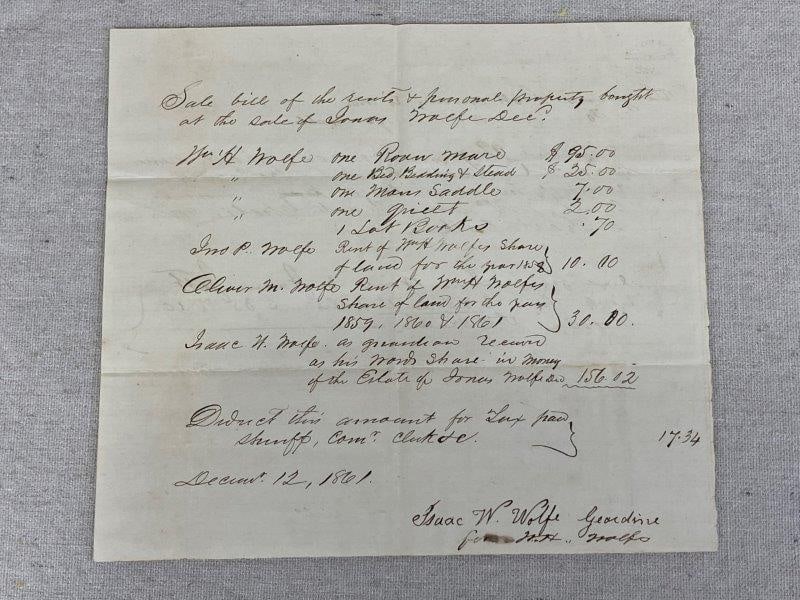 Sale bill of the rents & personal property bought
at the sale of Jonas Wolfe Decd.
Wm H Wolfe one Roan mare $ 95.00
" one Bed, Bedding & Stead $ 35.00
" one Mans Saddle 7.00
" one 2.00
1 Lot Books .70
Jno P. Wolfe Rent of Wm H Wolfes Share
of land for the year 1858 10.00
Oliver M. Wolfe Rent of Wm H Wolfes
Share of land for the years
1859, 1860 & 1861 30.00.
Isaac W. Wolfe. as guardian received
as his Wards Share in Money
of the Estate of Jonas Wolfe Dec 156.02
Deduct this amount for Tax paid
sheriff, Comr. Clerk &c. 17.34
Decemr. 12, 1861.
Isaac W. Wolfe Geardine
for W.H. Wolfe